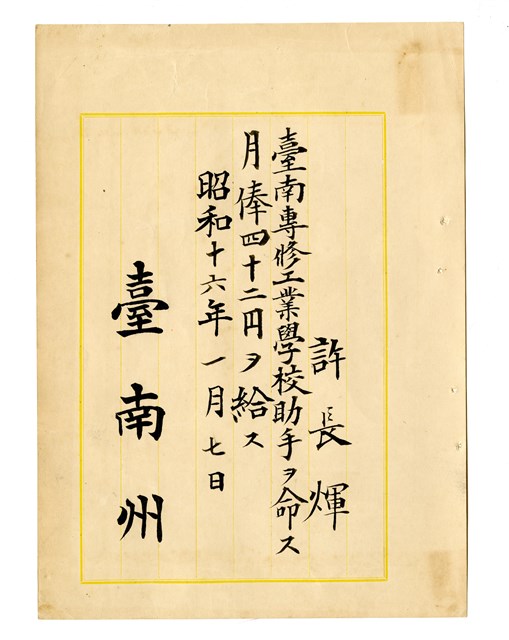 許長煇
臺南專修工業學校助手ヲ命ス
月俸四十二円ヲ給ス
昭和十六年一月七日
臺南州